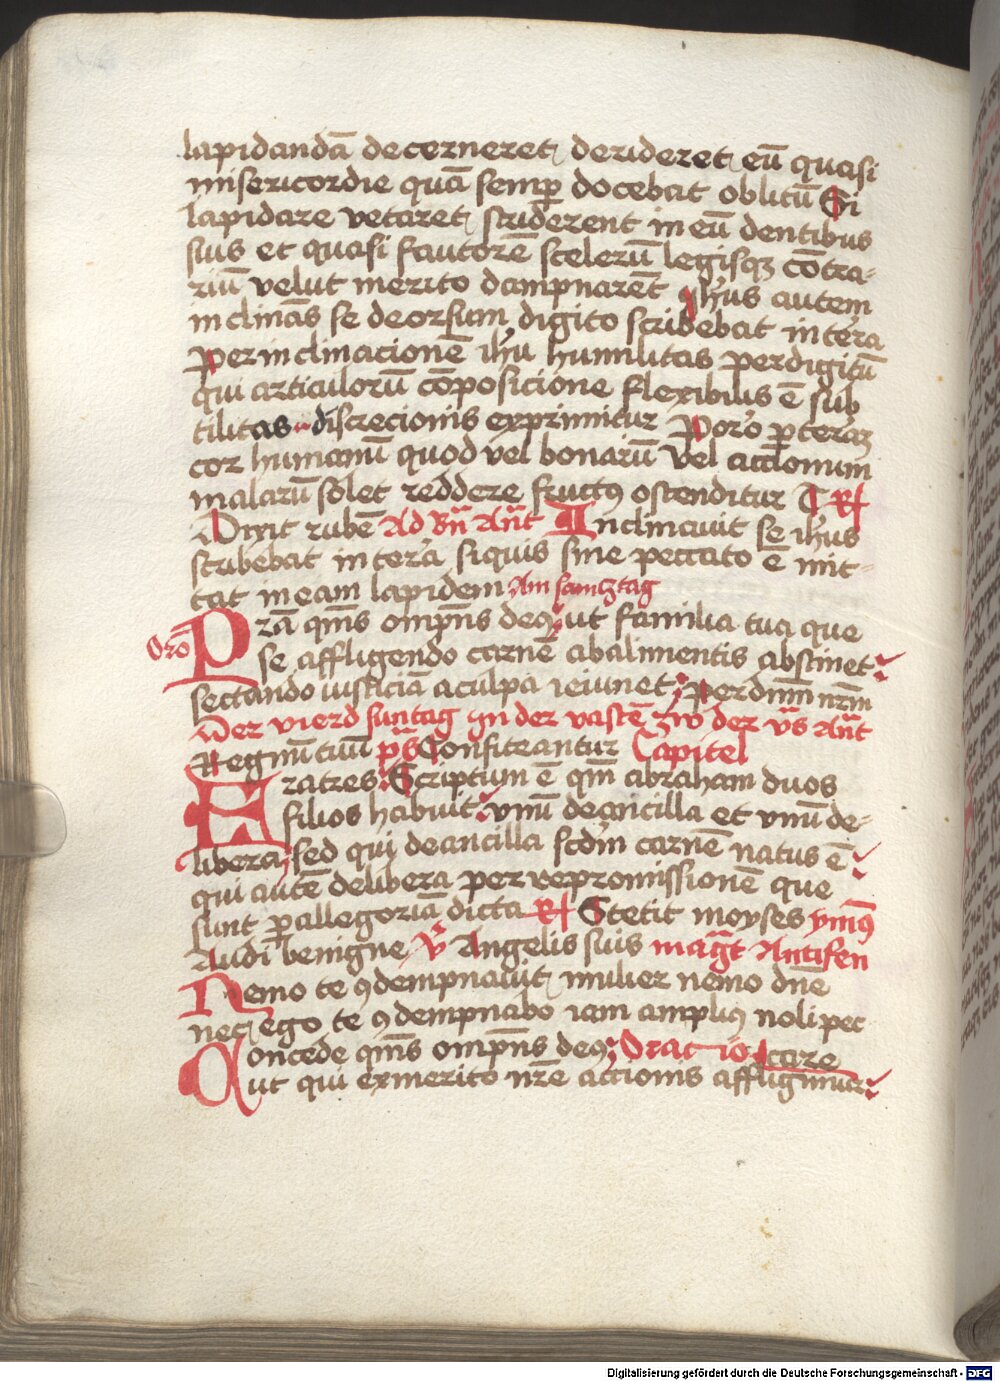 lapidandā decerneret, derideret, eū quasi
misericordie quā semp̄ docebat oblitū Si
lapidare vetaret, striderent in eū dentibus
suis et quasi fautorē scelerū legisqꝫ cōtra-
riū velut merito dampnarēt ihūs autem
inclināo se deorsum digito scribebat in tera
Per inclinacionē ihū humilitas per digitū
qui articulorū cōposicione flexibilis ē sub
tilitas discrecionis exprimitur Poro p terā
cor humanū quod vel bonarū vel accionum
malarū solet reddere fructꝰ ostenditur T R
Dixit rubē Ad Bn̄ Ant̄ Inclinavit se ihūs
scribebat in tera siquis sine peccato ē mit-
tat in eam lapidem Am samtztag
Orō Prā qm̄s omp̄ns deꝰ ut familia tua que
se affligendo carnē ab alimentis abstinet
sectando iusticiā a culpa ieiunet Per dnm̄ nr̄m
Der vierd suntag In der vastē zw der vs̄ Ant̄
Regnū tuū ps̄ Confiteantur Capitel
Fratres Scriptum ē qm̄ abraham duos
filios habuit vnū de ancilla et vnū de-
libera, sed qui de ancilla scdm̄ carnē natus ē
qui autē de libera per repromissionē que
sunt p allegoriā dicta R Stetit moyses ymnꝰ
Audi benigne V Angelis suis magt̄ Antifen
Nemo te ꝯdempnavit, mulier nemo dn̄e
nec ego te ꝯdempnabo iam ampliꝰ noli pec
Concede qm̄s omp̄ns deꝰ Oracio care
ut qui ex merito nr̄e accionis affligimur
Digitalisierung gefördert durch die Deutsche Forschungsgemeinschaft - DFG